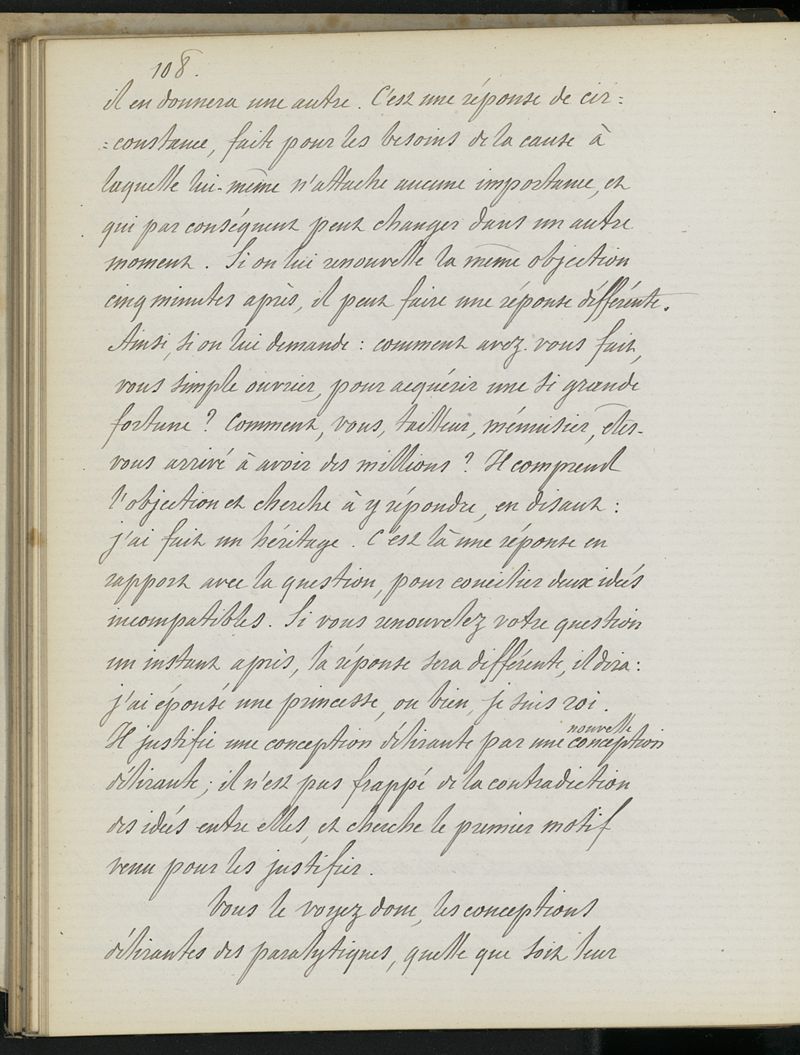 108.
il en donnera une autre. C'est une réponse de cir=
=constance, faite pour les besoins de la cause à
laquelle lui-même n'attache aucune importance, et
qui par conséquent peut changer dans un autre
moment. Si on lui renouvelle la même objection
cinq minutes après, il peut faire une réponse différente.
Ainsi, si on lui demande : comment avez-vous fait,
vous simple ouvrier, pour acquérir une si grande
fortune ? Comment, vous, tailleur, ménuisier, êtes-
vous arrivé à avoir des millions ? Il comprend
l'objection et cherche à y répondre, en disant :
j'ai fait un héritage. C'est là une réponse en
rapport avec la question, pour concilier deux idées
incompatibles. Si vous renouvelez votre question
un instant après, la réponse sera différente, il dira :
j'ai épousé une princesse, ou bien, je suis roi.
Il justifie une conception délirante par une nouvelle conception
délirante ; il n'est pas frappé de la contradiction
des idées entre elles, et cherche le premier motif
venu pour les justifier.
Vous le voyez donc, les conceptions
délirantes des paralytiques, quelle que soit leur